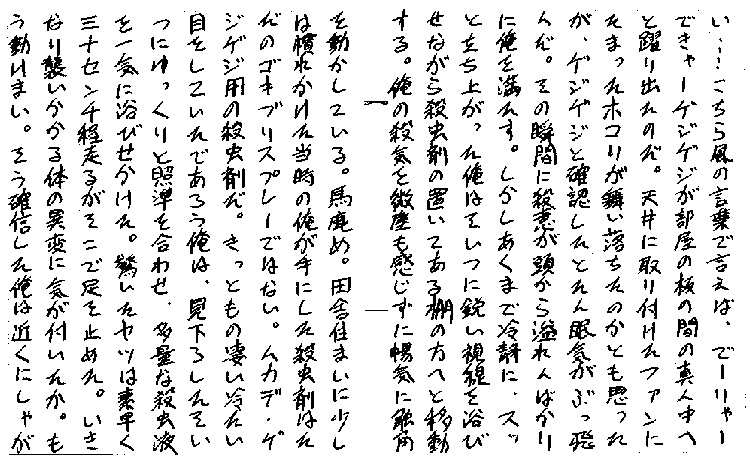 い…こちら風の言葉で言えば、でーりゃー
できゃーゲジゲジが部屋の板の間の真ん中へ
と躍り出たのだ。天井に取り付けたファンに
たまったホコリが舞い落ちたのかとも思った
が、ゲジゲジと確認したとたん眠気がぶっ飛
んだ。その瞬間に殺意が頭から溢れんばかり
に俺を満たす。しかしあくまで冷静に、スッ
と立ち上がった俺はそいつに鋭い視線を浴び
せながら殺虫剤の置いてある棚の方へと移動
する。俺の殺気を微塵も感じずに暢気に触角
を動かしている。馬鹿め。田舎住まいに少し
は慣れかけた当時の俺が手にした殺虫剤はた
だのゴキブリスプレーではない。ムカデ・ゲ
ジゲジ用の殺虫剤だ。きっともの凄い冷たい
目をしていたであろう俺は、見下ろしたそい
つにゆっくりと照準を合わせ、多量な殺虫液
を一気に浴びせかけた。驚いたヤツは素早く
三十センチ程走るがそこで足を止めた。いき
なり襲いかかる体の異変に気が付いたか。も
う動けまい。そう確信した俺は近くにしゃが